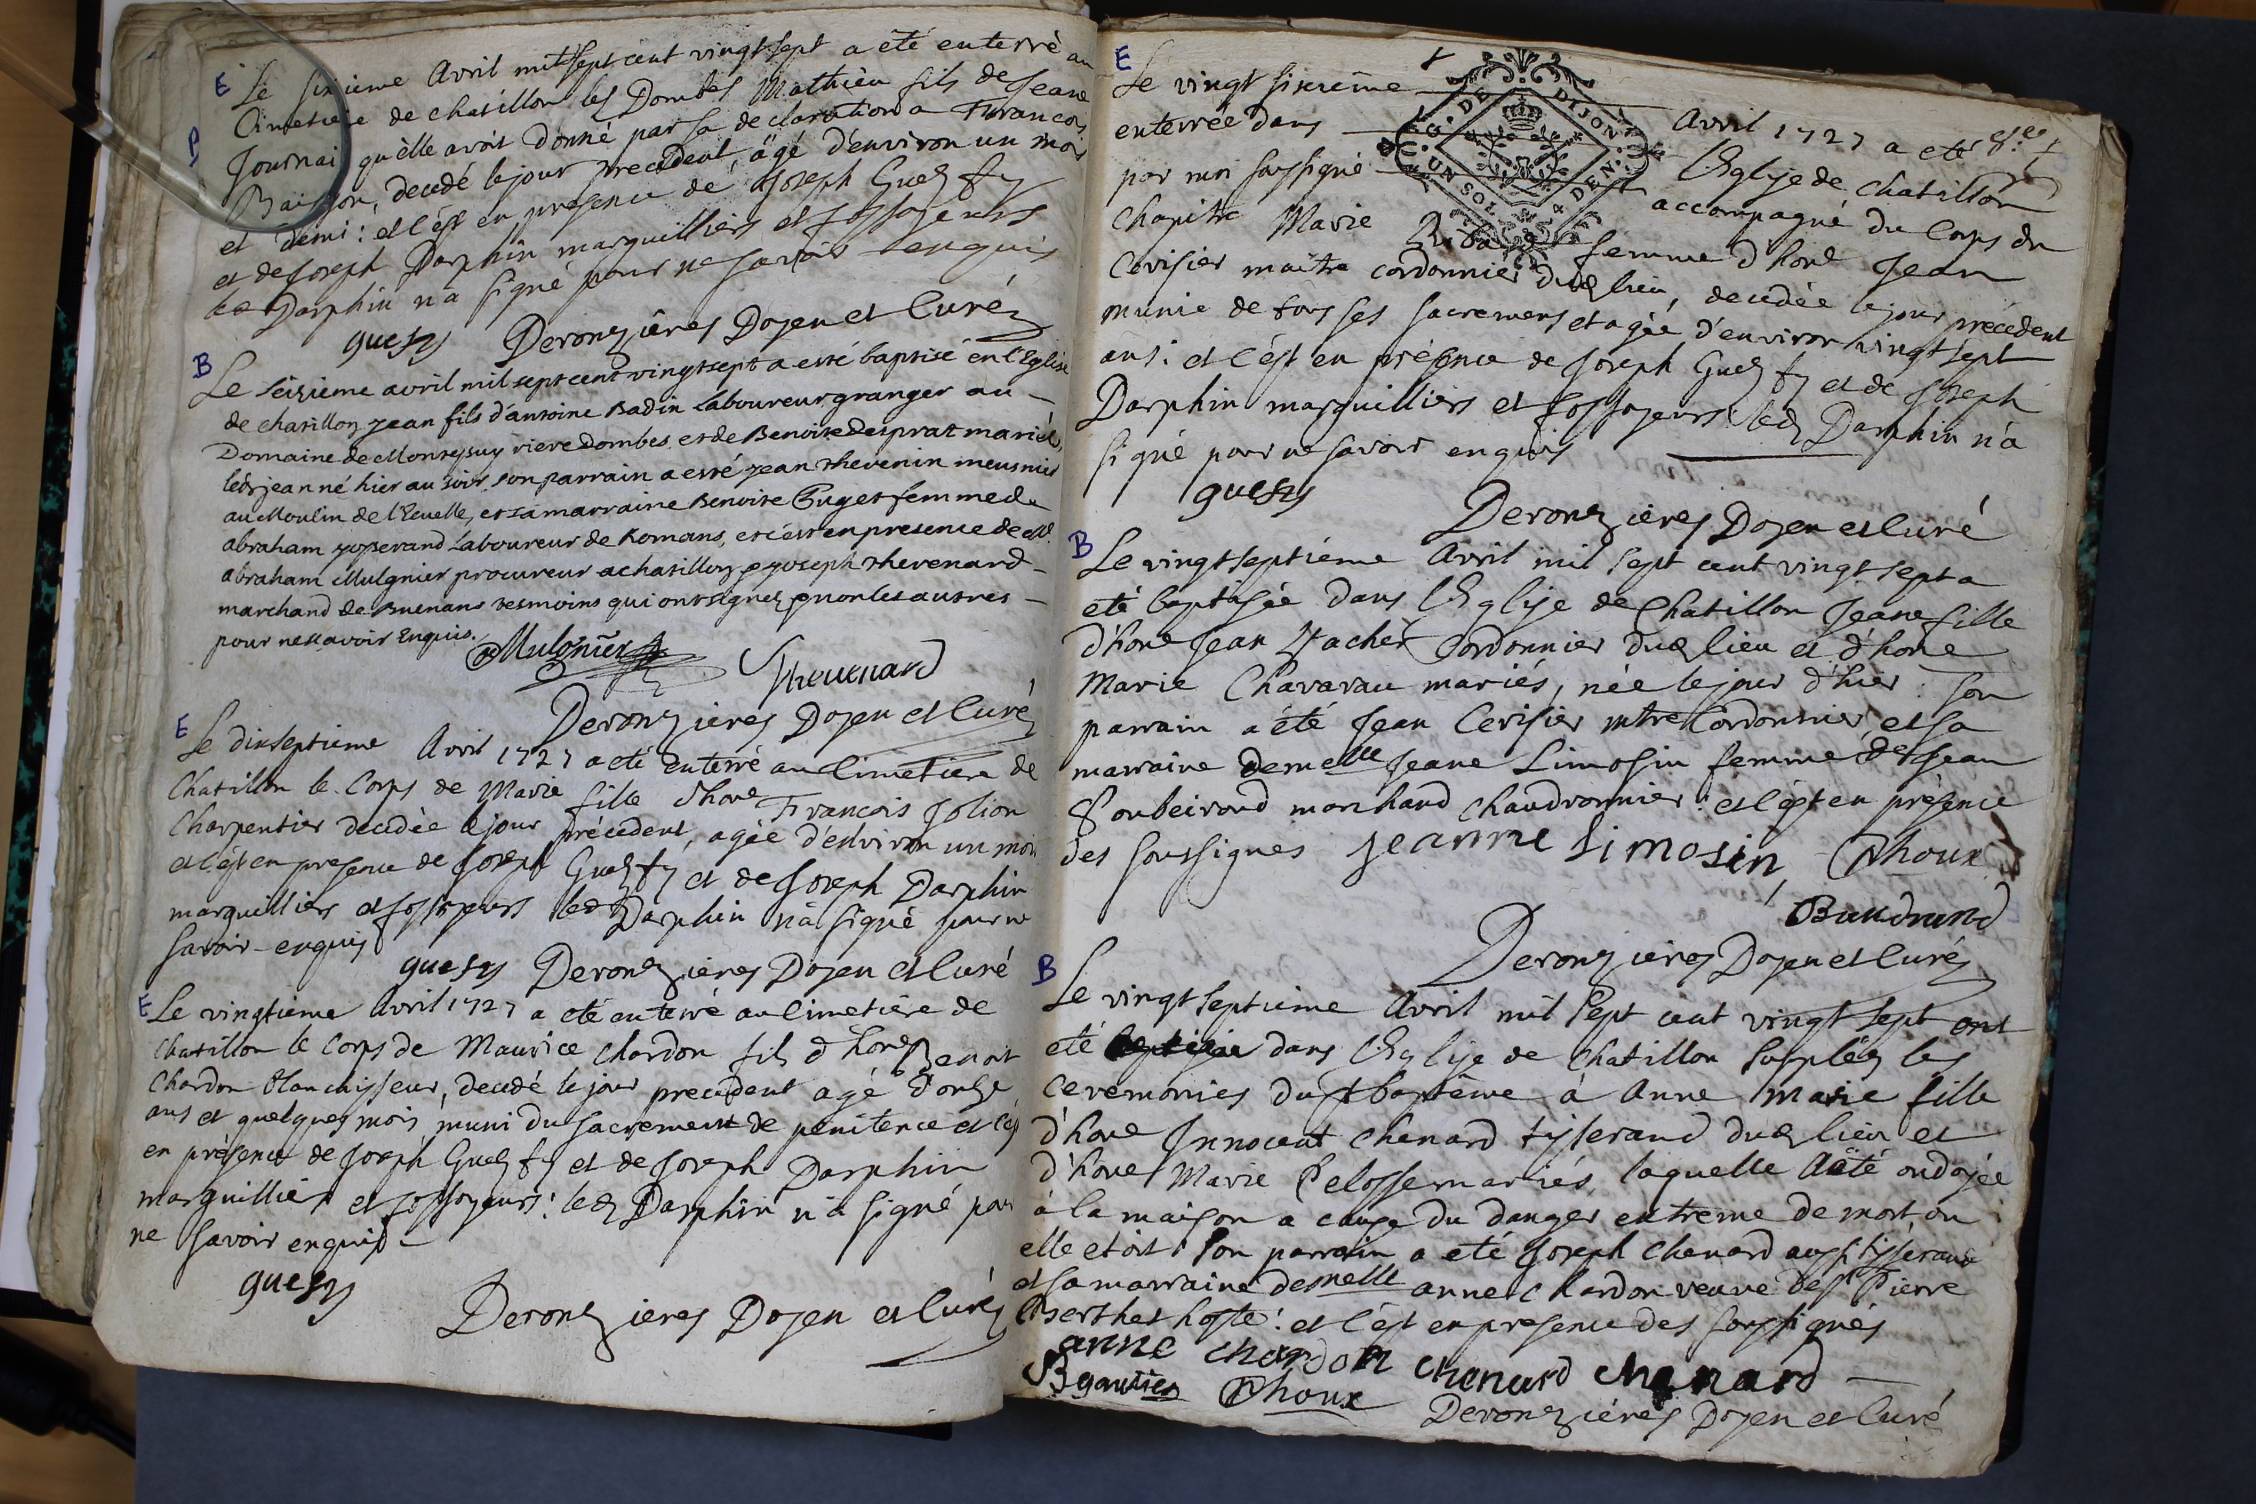 E
Le sixieme Avril mil sept cent vingt sept a été enterré au
P
Cimetiere de chatillon les Dombes Mathieu fils de Jeane
Journai qu'elle avoit donné par sa declaration a Francois
Baisson, decedé le jour precedent, âgé d'environ un mois
et demi: et c'est en presence de Joseph Gues fy
et de Joseph Darphin marguilliers et fossoyeurs
led Darphin n'a signé pour ne savoir enquis
guesfy Deronzières Doyen et Curé
B
Le seizieme avril mil sept cent vingt sept a esté baptisé en l'Eglise
de chatillon jean fils d'antoine Badin Laboureur granger au
Domaine de Monteysuy riere dombes et de Benoite desprat mariés,
led jean né hier au soir, son parrain a esté jean thevenin meusnier
au Moulin de l'Ecuelle, et sa marraine Benoite Puget femme de
abraham Laboureur de Romans, et c'est en presence de Me
abraham Mulgnier procureur a chatillon & joseph thevenard
marchand de Buenans tesmoins qui ont signez & non les autres
pour ne scavoir Enquis.
Mulgnier Thevenard
Deronzieres Doyen et Curé
E
Le dixseptieme Avril 1727 a eté enterré au Cimetiere de
Chatillon le Corps de Marie fille d'hone Francois Jolion
Charpentier decedée le jour précedent, agée d'environ un mois
et c'est en presence de Joseph Gues fy et de Joseph Darphin
marguilliers et fossoyeurs led Darphin n'a signé pour ne
savoir enquis
guesfy Deronzieres Doyen et Curé
E
Le vingtieme Avril 1727 a eté enterré au Cimetiere de
Chatillon le Corps de Maurice Chardon fils d'hone Benoit
Chardon blanchisseur, decedé le jour precedent agé d'onze
ans et quelques mois, muni du sacrement de penitence et c'est
en présence de Joseph Gues fy et de Joseph Darphin
marguilliers et fossoyeurs: led Darphin n'a signé pour
ne savoir enquis
guesfy
Deronzieres Doyen et Curé
E
Le vingt sixieme Avril 1727 a eté
G. DE DIJON
UN SOL 4 DEN.
enterrée dans l'Eglise de Chatillon
par moi soussigné accompagné du Corps du
Chapitre Marie femme d'hone Jean
Cerisier maitre cordonnier dud lieu, decedée le jour précedent
munie de tous ses sacremens et agée d'environ vingt sept
ans: et c'est en présence de Joseph Gues fy et de Joseph
Darphin marguilliers et fossoyeurs: led Darphin n'a
signé pour ne savoir enquis
guesfy
Deronzieres Doyen et Curé
B
Le vingt septiéme Avril mil sept cent vingt sept a
eté baptisée dans l'Eglise de Chatillon Jeane fille
d'hone Jean Vachet Cordonnier dud lieu et d'hone
Marie Chavavau mariés, née le jour d'hier: son
parrain a été Jean Cerisier mtre Cordonnier, et sa
marraine demelle Jeane Limosin femme de Jean
Soubeirand marchand chaudronnier: et c'est en présence
des soussignes jeanne Limosin Rhoux
Baudrand
Deronzieres Doyen et Curé
B
Le vingt septieme Avril mil sept cent vingt sept ont
eté dans l'Eglise de Chatillon suppléez les
ceremonies du st bapteme à Anne Marie fille
d'hone Innocent Chenard tisserand dud lieu et
d'hone Marie Pelosse mariés, laquelle a eté ondoyée
à la maison a cause du danger extreme de mort, ou
elle etoit. son parrain a eté Joseph Chenard aussi tisserand
et sa marraine demelle anne Chardon veuve de st Pierre
Berthet hoste: et c'est en presence des soussignés
anne chardon chenard chenard
B gautier Rhoux Deronzieres Doyen et Curé